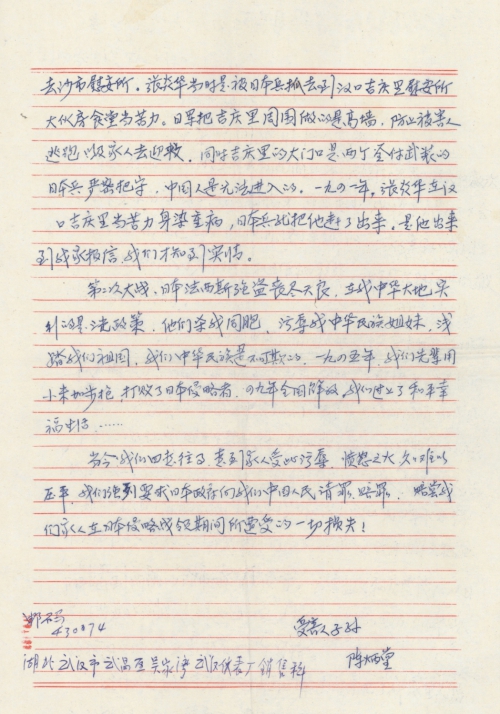 去沙市慰安所。张炎华当时是被日本兵抓去到汉口吉庆里慰安所
大伙房食堂当苦力。日军把吉庆里周围做的是高墙,防止被害人
逃跑以及家人去迎救,同时吉庆里的大门口是两个全付武装的
日本兵严密把守,中国人是无法进入的。一九四一年,张炎华在汉
口吉庆里当苦力身染重病,日本兵就把他赶了出来,是他出来
到我家报信,我们才知到实情。
第二次大战,日本法西斯强盗丧尽天良,在我中华大地实
行的是三光政策,他们杀我同胞,污辱我中华民族姐妹,浅
踏我们祖国,我们中华民族是不可欺的,一九四五年,我们先辈用
小米加步枪,打败了日本侵略者,四九年全国解放,我们过上了和平幸
福生活……
当今我们回忆往事,想到家人受此污辱,愤怒之火久难以
压平,我们强列要求日本政府向我们中国人民请罪、赔罪,赔尝我
们家人在日本侵略战领期间所遭受的一切损失!
邮码
430074
受害人子孙
湖北武汉市武昌区吴家湾武汉仪表厂销售科
陈炳堂